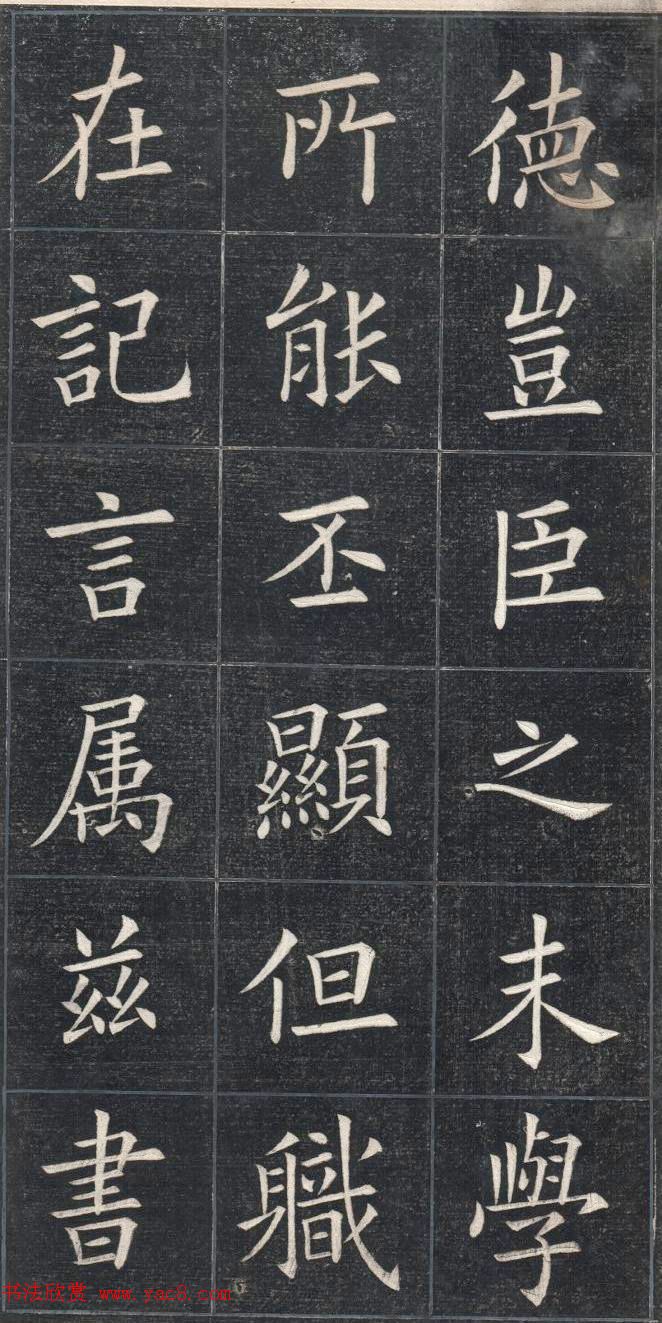 德豈臣之末學
所能丕顯但軄
在記言属兹書
书法欣赏 www.yac8.com